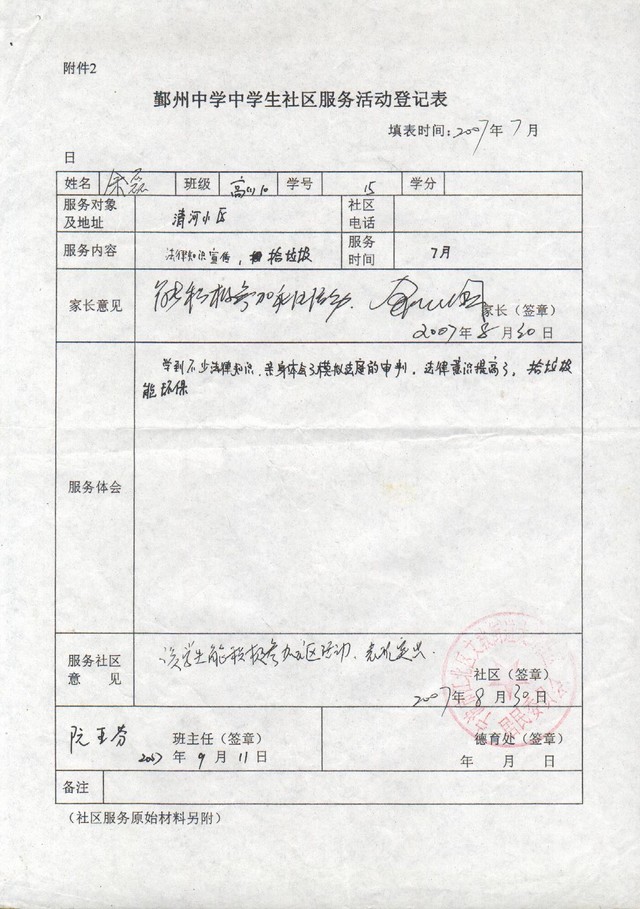 附件2
鄞州中学中学生社区服务活动登记表
填表时间:2007年7月
日
姓名 余磊 班级 高一10 学号 15 学分
服务对象及地址 清河小区 社区电话
服务内容 法律知识宣传, 拾垃圾 服务时间 7月
家长意见 能积极参加社区活动.
家长(签章)
2007年8月30日
学到不少法律知识.亲身体会了模拟法庭的审判,法律意识提高了,拾垃圾
能环保
服务体会
该学生能积极参加社区活动.表现突出.
服务社区
意 见
社区(签章)
2007年8月30日
阮亚芬 班主任(签章) 德育处(签章)
2007年9月11日 年 月 日
备注
(社区服务原始材料另附)